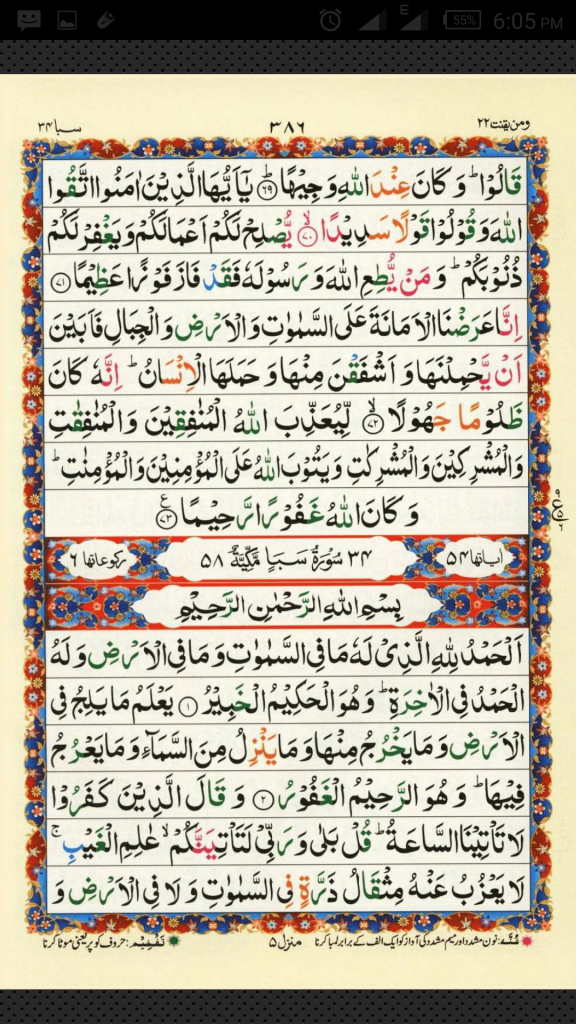 E 55% 6:05 PM
ومن یقنت ۲۲ ۳۸۶ سبا ۳۴
قَالُوْا ؕ وَ كَانَ عِنْدَ اللّٰهِ وَجِيْهًا ؕ ﴿۶۹﴾ يٰۤاَيُّهَا الَّذِيْنَ اٰمَنُوا اتَّقُوا
اللّٰهَ وَ قُوْلُوْا قَوْلًا سَدِيْدًا ۙ ﴿۷۰﴾ يُّصْلِحْ لَكُمْ اَعْمَالَكُمْ وَ يَغْفِرْ لَكُمْ
ذُنُوْبَكُمْ ؕ وَ مَنْ يُّطِعِ اللّٰهَ وَ رَسُوْلَهٗ فَقَدْ فَازَ فَوْزًا عَظِيْمًا ﴿۷۱﴾
اِنَّا عَرَضْنَا الْاَمَانَةَ عَلَى السَّمٰوٰتِ وَ الْاَرْضِ وَ الْجِبَالِ فَاَبَيْنَ
اَنْ يَّحْمِلْنَهَا وَ اَشْفَقْنَ مِنْهَا وَ حَمَلَهَا الْاِنْسَانُ ؕ اِنَّهٗ كَانَ
ظَلُوْمًا جَهُوْلًا ۙ ﴿۷۲﴾ لِّيُعَذِّبَ اللّٰهُ الْمُنٰفِقِيْنَ وَ الْمُنٰفِقٰتِ
وَ الْمُشْرِكِيْنَ وَ الْمُشْرِكٰتِ وَ يَتُوْبَ اللّٰهُ عَلَى الْمُؤْمِنِيْنَ وَ الْمُؤْمِنٰتِ ؕ
وَ كَانَ اللّٰهُ غَفُوْرًا رَّحِيْمًا ﴿۷۳﴾ ع
اٰیاتها ۵۴ ۳۴ سُوْرَةُ سَبَاٍ مَّكِّيَّةٌ ۵۸ رکوعاتها ۶
بِسْمِ اللّٰهِ الرَّحْمٰنِ الرَّحِيْمِ
اَلْحَمْدُ لِلّٰهِ الَّذِيْ لَهٗ مَا فِي السَّمٰوٰتِ وَ مَا فِي الْاَرْضِ وَ لَهُ
الْحَمْدُ فِي الْاٰخِرَةِ ؕ وَ هُوَ الْحَكِيْمُ الْخَبِيْرُ ﴿۱﴾ يَعْلَمُ مَا يَلِجُ فِي
الْاَرْضِ وَ مَا يَخْرُجُ مِنْهَا وَ مَا يَنْزِلُ مِنَ السَّمَآءِ وَ مَا يَعْرُجُ
فِيْهَا ؕ وَ هُوَ الرَّحِيْمُ الْغَفُوْرُ ﴿۲﴾ وَ قَالَ الَّذِيْنَ كَفَرُوْا
لَا تَاْتِيْنَا السَّاعَةُ ؕ قُلْ بَلٰى وَ رَبِّيْ لَتَاْتِيَنَّكُمْ ۙ عٰلِمِ الْغَيْبِ ۚ
لَا يَعْزُبُ عَنْهُ مِثْقَالُ ذَرَّةٍ فِي السَّمٰوٰتِ وَ لَا فِي الْاَرْضِ وَ
غُنّہ: نون مشدد اور میم مشدد کی آواز کو ایک الف کے برابر لمبا کرنا منزل ۵ تفخیم: حروف کو پر یعنی موٹا کرنا